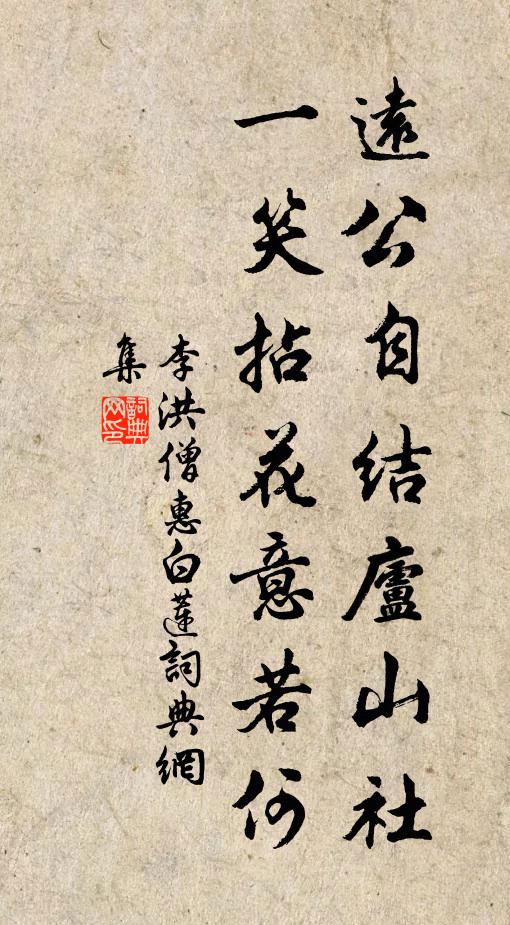 遠公自結廬山社
一笑拈花意若何
李洪僧惠白蓮詞典網
集
詞典网印